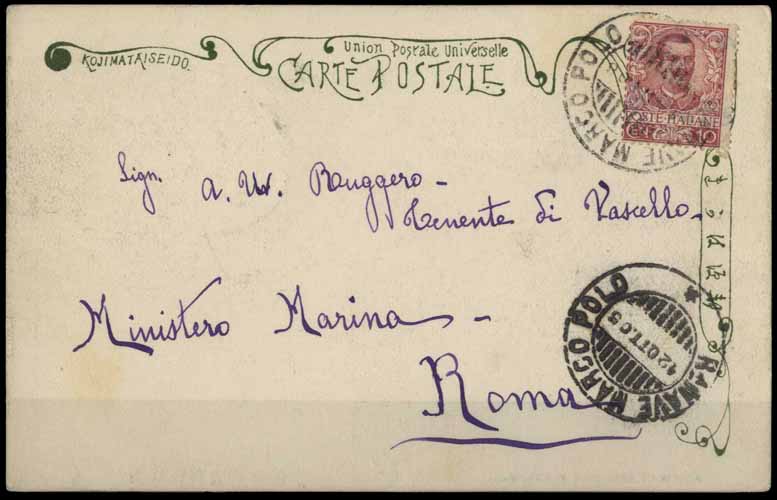 KOJIMATAISEIDO.
Union Postale Universelle
CARTE POSTALE.
MARCO POLO
POSTE ITALIANE
10
Sign. a. Ruggero -
Tenente di Vascello -
Ministero Marina -
Roma
R. NAVE MARCO POLO *
12 OTT. 05